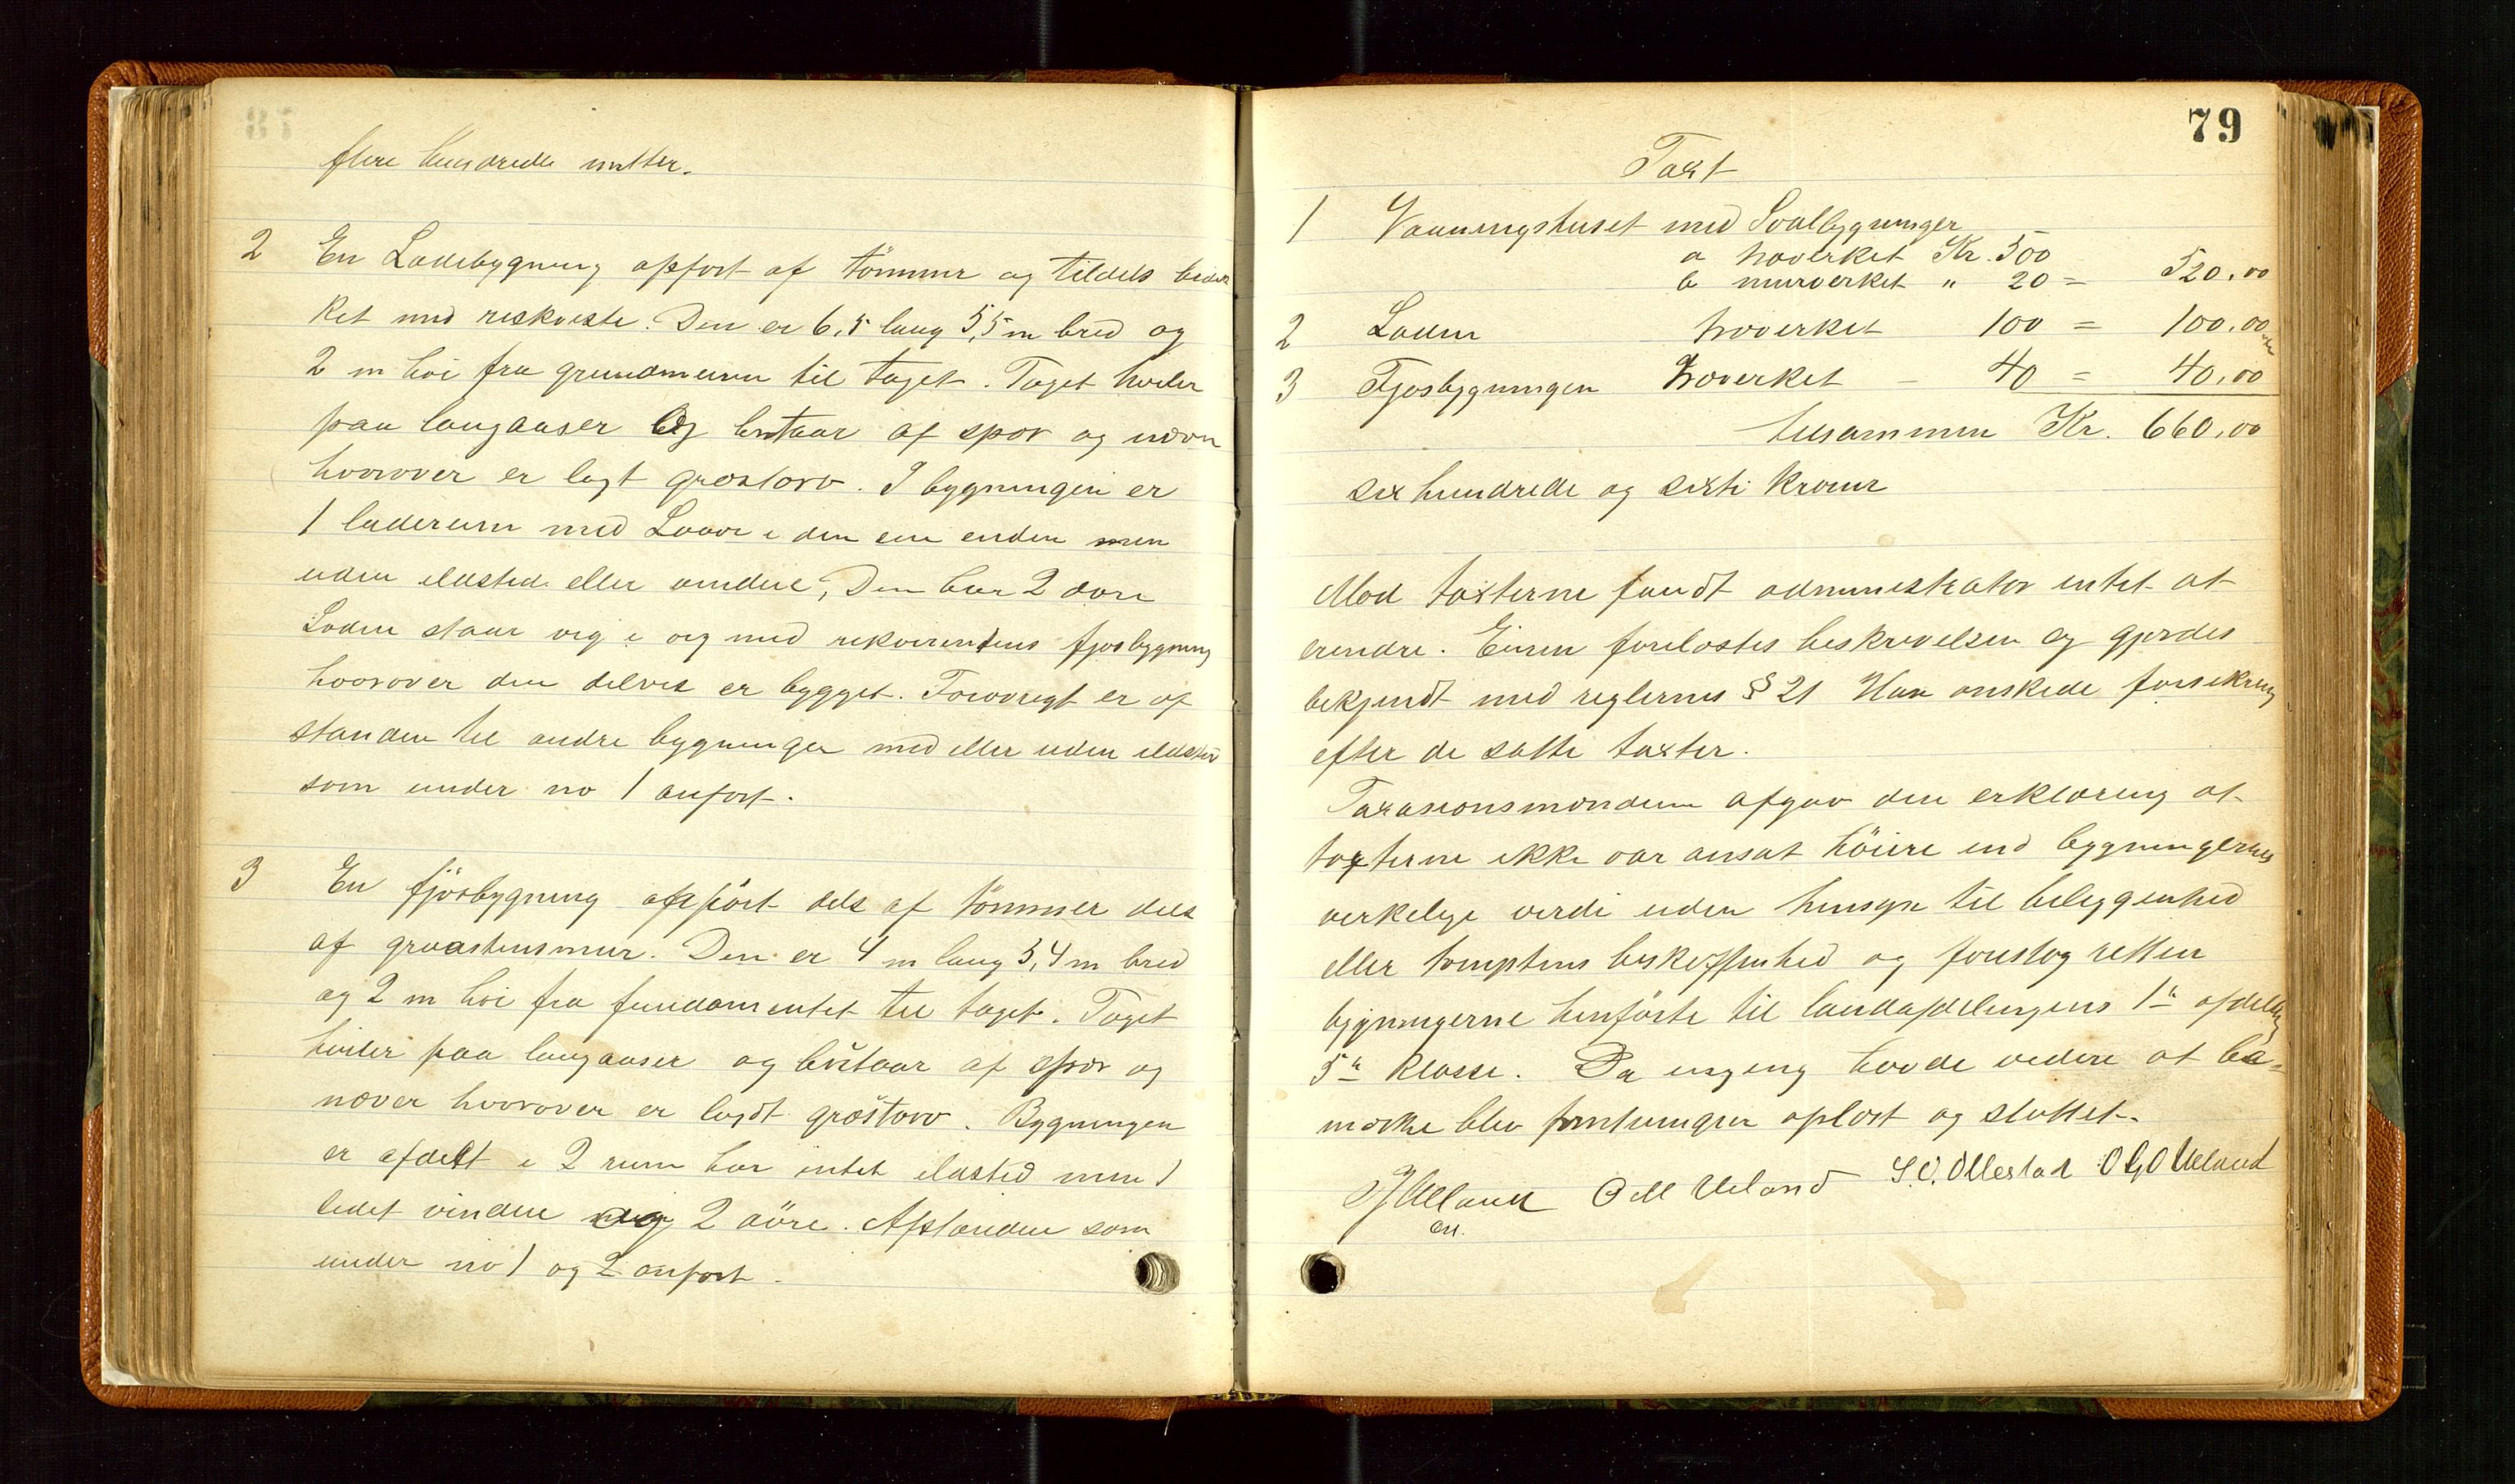 flere hundrede metter.
2 En Ladebygning opført af tömmer og tildels beder
ket med reskviste. Den er 6,5 lang 5,5 m bred og
2 m høi fra grundmuren til taget. Taget hviler
paa langaaser og bestaar af spor og næver
hvorover er lagt græstorv. I bygningen er
1 laderum med Laave i den ene enden men
uden ildsted eller vinduer, Den har 2 døre
Laden staar veg i veg med rekvirentens fjøsbygning
hvorover den delvis er bygget. Forøvrigt er af
standen til andre bygninger med eller uden ildsted
som under no 1 anført.
3 En fjösbygning opfört dels af tömmer dels
af graastensmur. Den er 4 m lang 3,4 m bred
og 2 m høi fra fundamentet til taget. Taget
hviler paa langaaser og bestaar af spor og
næver hvorover er lagdt græstorv. Bygningen
er afdelt i 2 rum har intet ildsted men 1
lidet vindue og 2 döre. Afstanden som
under no 1 og 2 anført.
79
Taxt
1 Vaaningshuset med Svalbygninger
a træverket Kr. 500
b murverket " 20 = 520,00
2 Laden træverket 100 = 100,00
3 Fjøsbygningen Træverket - 40 = 40,00
tilsammen Kr. 660,00
sex hundrede og sexti kroner
Mod taxterne fandt administrator intet at
erindre. Eieren forelæstes beskrivelsen og gjordes
bekjendt med reglernes § 21 Han ønskede forsikring
efter de satte taxter.
Taxasionsmændene afgav den erklæring at
taxterne ikke var ansat höiere end bygningernes
verkelige verdi uden hensyn til beliggenhed
eller tomptens beskaffenhed og foreslog retten
bygningerne henförte til landafdelingens 1ste afdeling
5te klasse. Da ingen havde videre at be-
mærke blev forretningen oplæst og sluttet.
O M Ueland S. O. Ollestad O G O Ueland